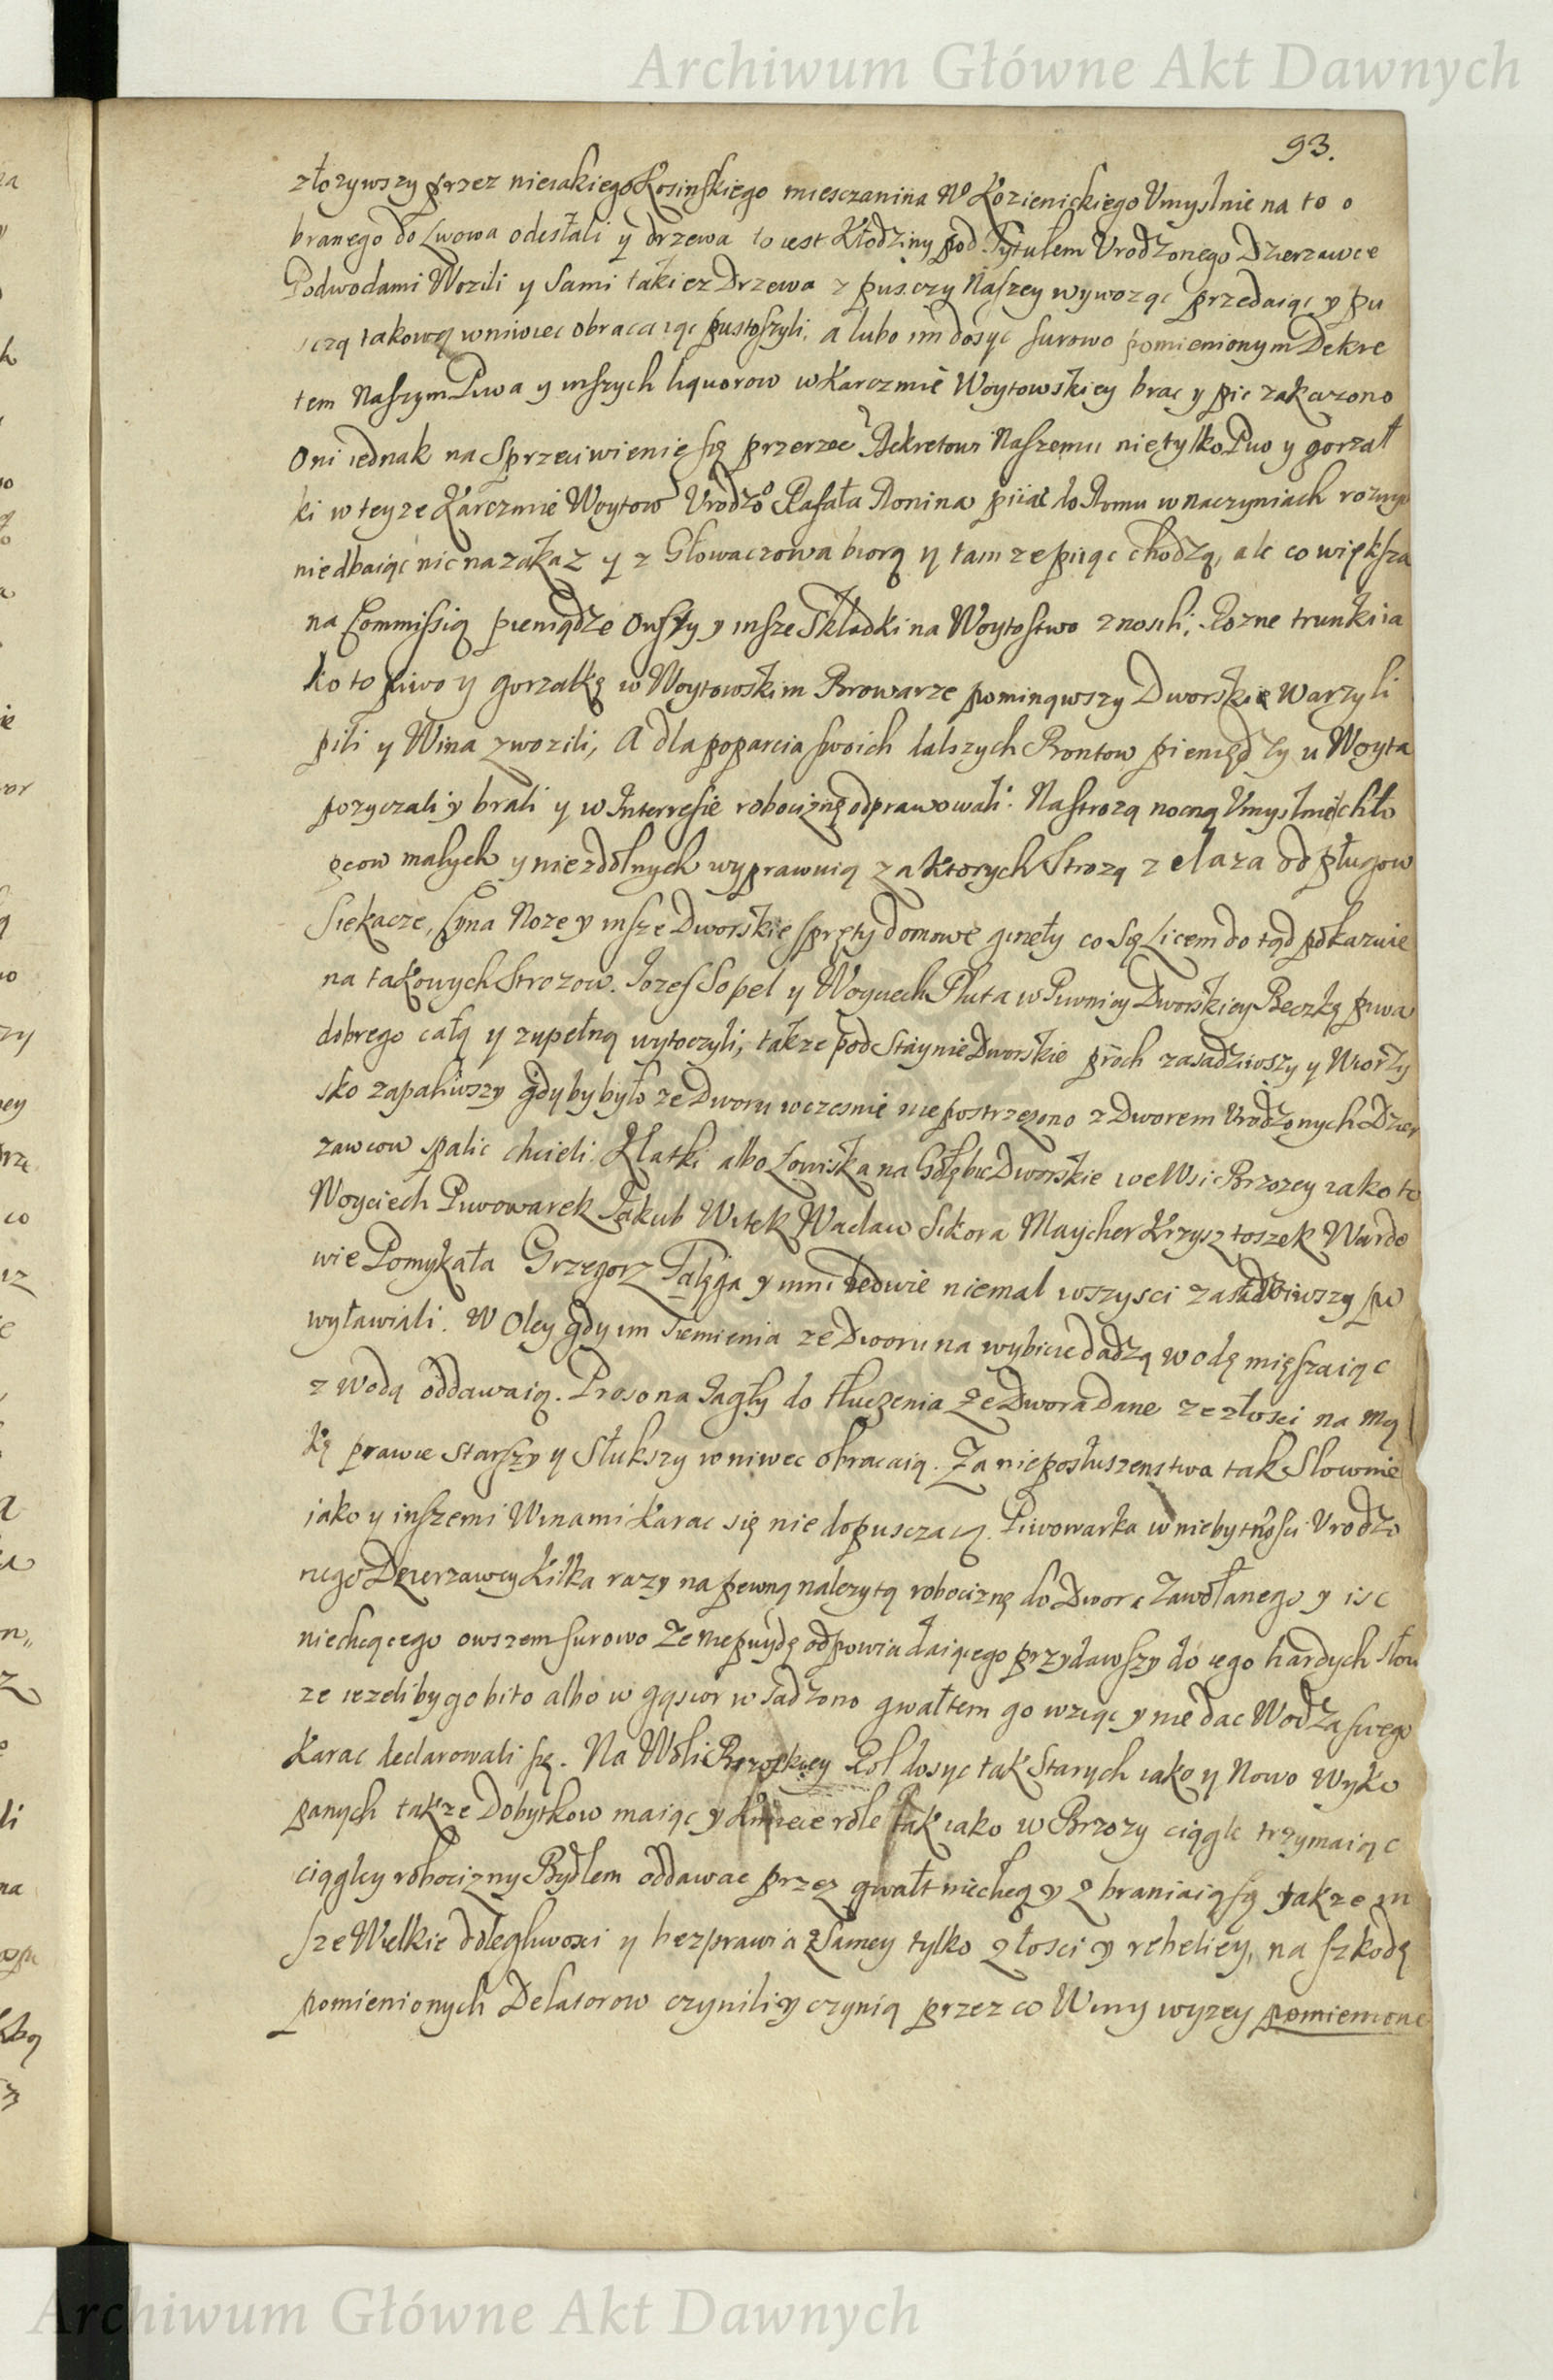 Archiwum Główne Akt Dawnych
93.
złozywszy przez nieiakiego Kosinskiego miesczanina No Kozienickiego Vmyslnie na to o
branego do Lwowa odesłali y drzewa to iest Kłodziny pod Tytułem Vrodzonego Dzierzawce
Podwodami Wozili y Sami takiez Drzewa z pusczy Naszey wywoząc przedaiąc y pu
sczą takową wniwiec obracaiąc pustoszyli, a lubo im dosyc surowo pomienionym Dekre
tem Naszym Piwa y inszych liquorow w Karczmie Woytowskiey brac y pic zakazono
Oni iednak na Sprzeciwienie się przerzec Dekretowi Naszemu nietylko Piwo y gorzał
ki w teyze Karczmie Woytow Vrodzo Rafała Ronina piiac do Domu w naczyniach roznych
niedbaiąc nic na zakaz y z Głowaczowa biorą y tam ze piiąc chodzą, ale co większa
na Commissią pieniądze Onszy y insze Składki na Woytostwo znosili, Rozne trunki ia
ko to piwo y gorzałkę w Woytowskim Browarze pominąwszy Dworskie warzyli
pili y Wina zwozili, A dla poparcia swoich dalszych Bontow pieniędzy u Woyta
pozyczali y brali y w Interresie robociznę odprawowali. Na strozą nocną Vmyslnie chło
pcow małych y niezdolnych wyprawuią za ktorych Strozą zelaza od pługow
Siekacze, Syna Noze y insze Dworskie sprzęty domowe gineły co Się Licem do tąd pokazuie
na takowych Strozow. Iozef Sopel y Woyciech Pluta w Piwnicy Dworskiey Beczkę piwa
dobrego całą y zupełną wytoczyli, takze pod Staynie Dworskie proch zasadziwszy y Wiorzy
sko zapaliwszy gdyby było ze Dworu wczesnie nie postrzezono z Dworem Vrodzonych Dzier
zawcow spalic chcieli. Klatki albo Łowiska na Gołębie Dworskie we Wsi Brzozey iako to
Woyciech Piwowarek Iakub Witek Wacław Sikora Maycher Krzysztoszek Wardo
wie Pomykała Grzegorz Tałęga y inni ledwie niemal wszysci zasadziwszy po
wyławiali. W Oley gdy im Siemienia ze Dworu na wybicie dadzą wodę mięszaiąc
z wodą oddawaią. Proso na Iagły do tłuczenia ze Dwora Dane ze złosci na mą
kę prawie Starszy y Stłukszy w niwec obracaią. Za nieposłuszenstwa tak Słownie
iako y inszemi Winami Karac się nie dopusczaią. Piwowarka w niebytnosci Vrodzo
nego Dzierzawcy Kilka razy na pewną nalezytą robociznę do Dwora Zawołanego y isc
niechcącego owszem surowo Ze nie puydę odpowiadaiącego przydawszy do iego hardych słow
ze iezeliby go bito albo w gąsior w sadzono gwałtem go wziąc y nie dac Wodza swego
Karac declarowali się. Na Woli Brzoskiey Rol dosyc tak Starych iako y Nowo Wyko
panych takze Dobytkow maiąc y Kmiece role tak iako w Brzozy ciągle trzymaiąc
ciągłey robocizny Bydłem oddawac przez gwałt niechcą y Zbraniaią się takze in
sze Wielkie dolegliwosci y bezprawia z Samey tylko złosci y rebeliey, na szkodę
pomienionych Delatorow czynili y czynią przez co Winy wyzey pomienione
Archiwum Główne Akt Dawnych